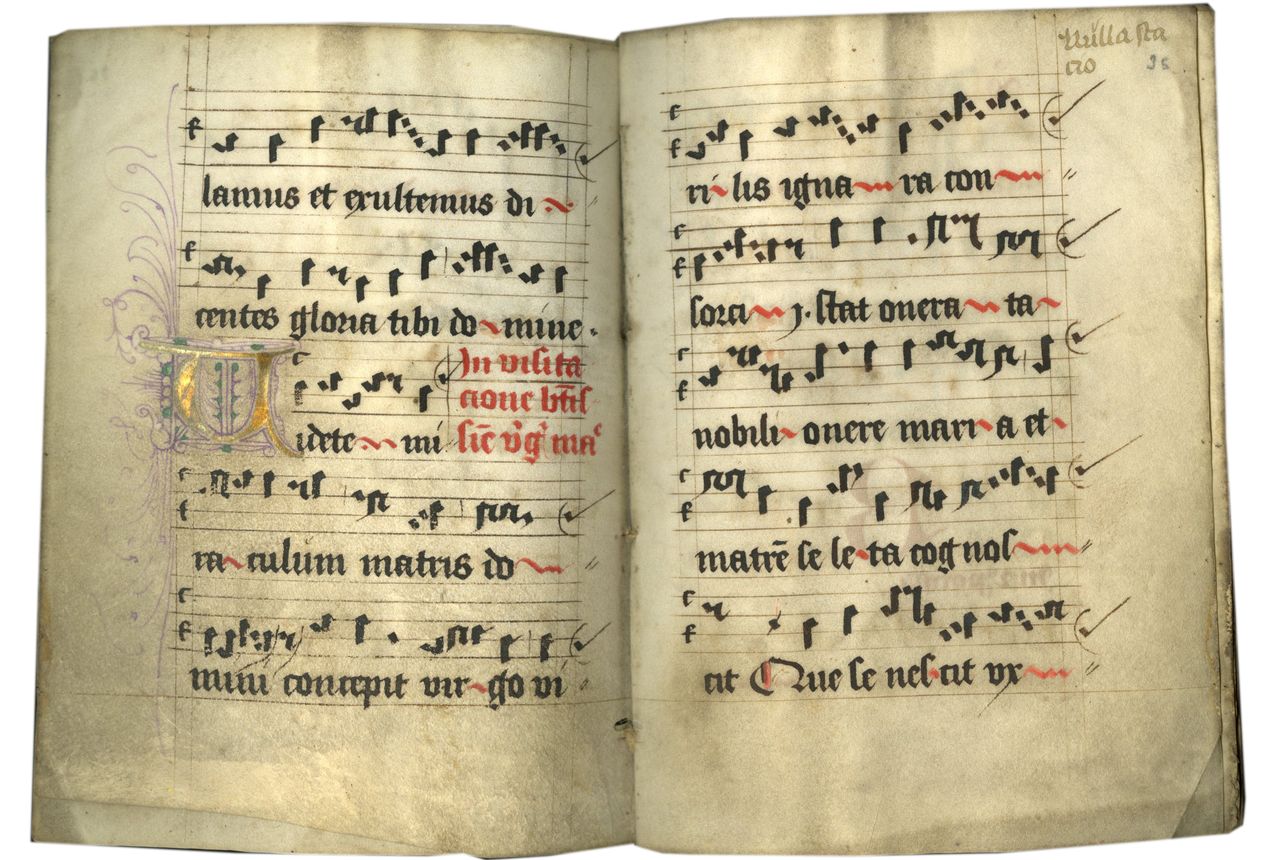 lamus et exultemus di
centes gloria tibi do mine.
In visita
cione btīs
Videte mi
sīe v̄gͥ maᶜ
ra culum matris do
mini concepit vir go vi
Nulla sta
cio 35
ri lis igna ra con
sorci j. stat onera ta
nobili onere mari a et
matrē se le ta cognos
cit Que se nescit ux